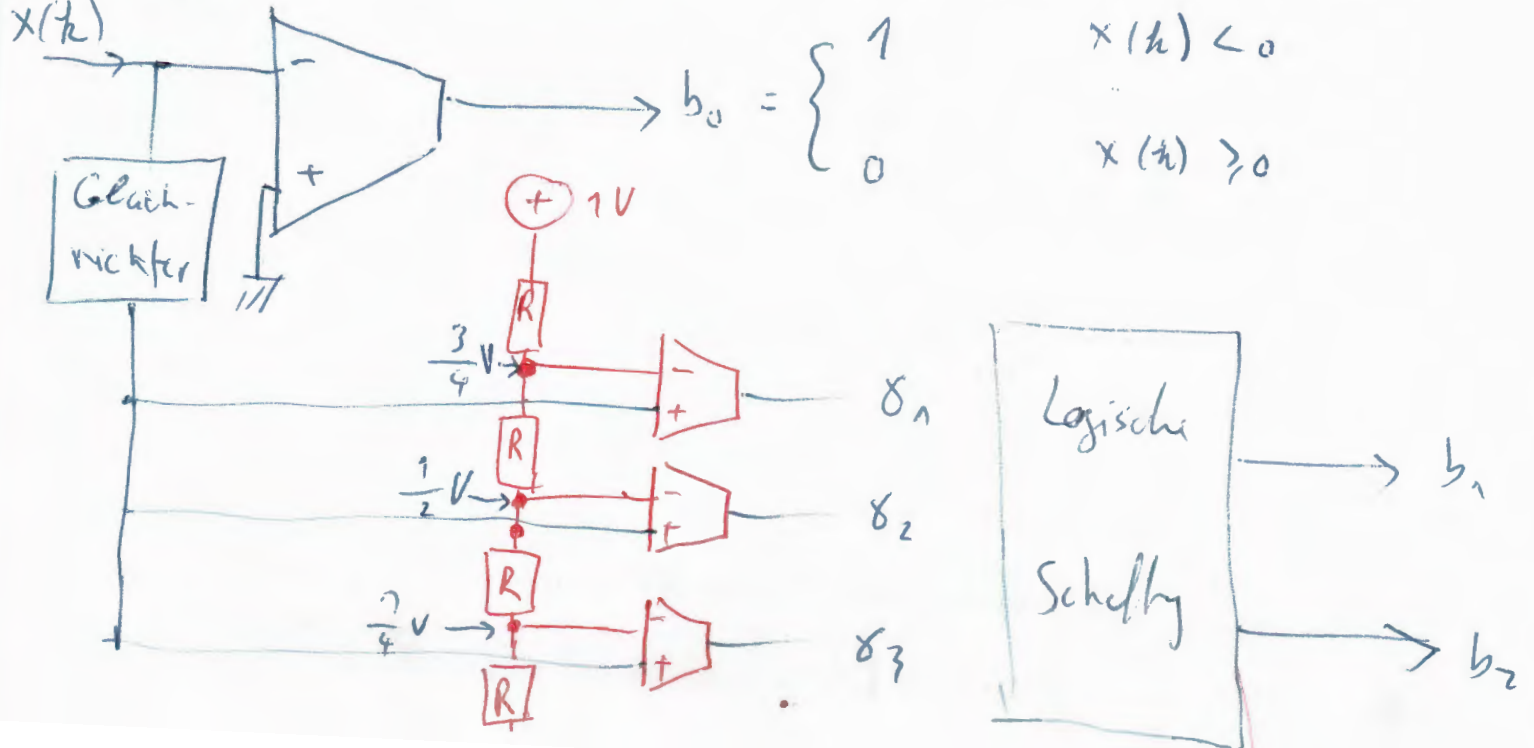 x(k)
-
+
b₀ = { 1 x(k) < 0
0 x(k) ≥ 0
Gleich-
richter
+ 1V
R
3/4 V
-
+
γ₁
R
1/2 V
-
+
γ₂
R
1/4 V
-
+
γ₃
R
Logische
Schaltung
b₁
b₂